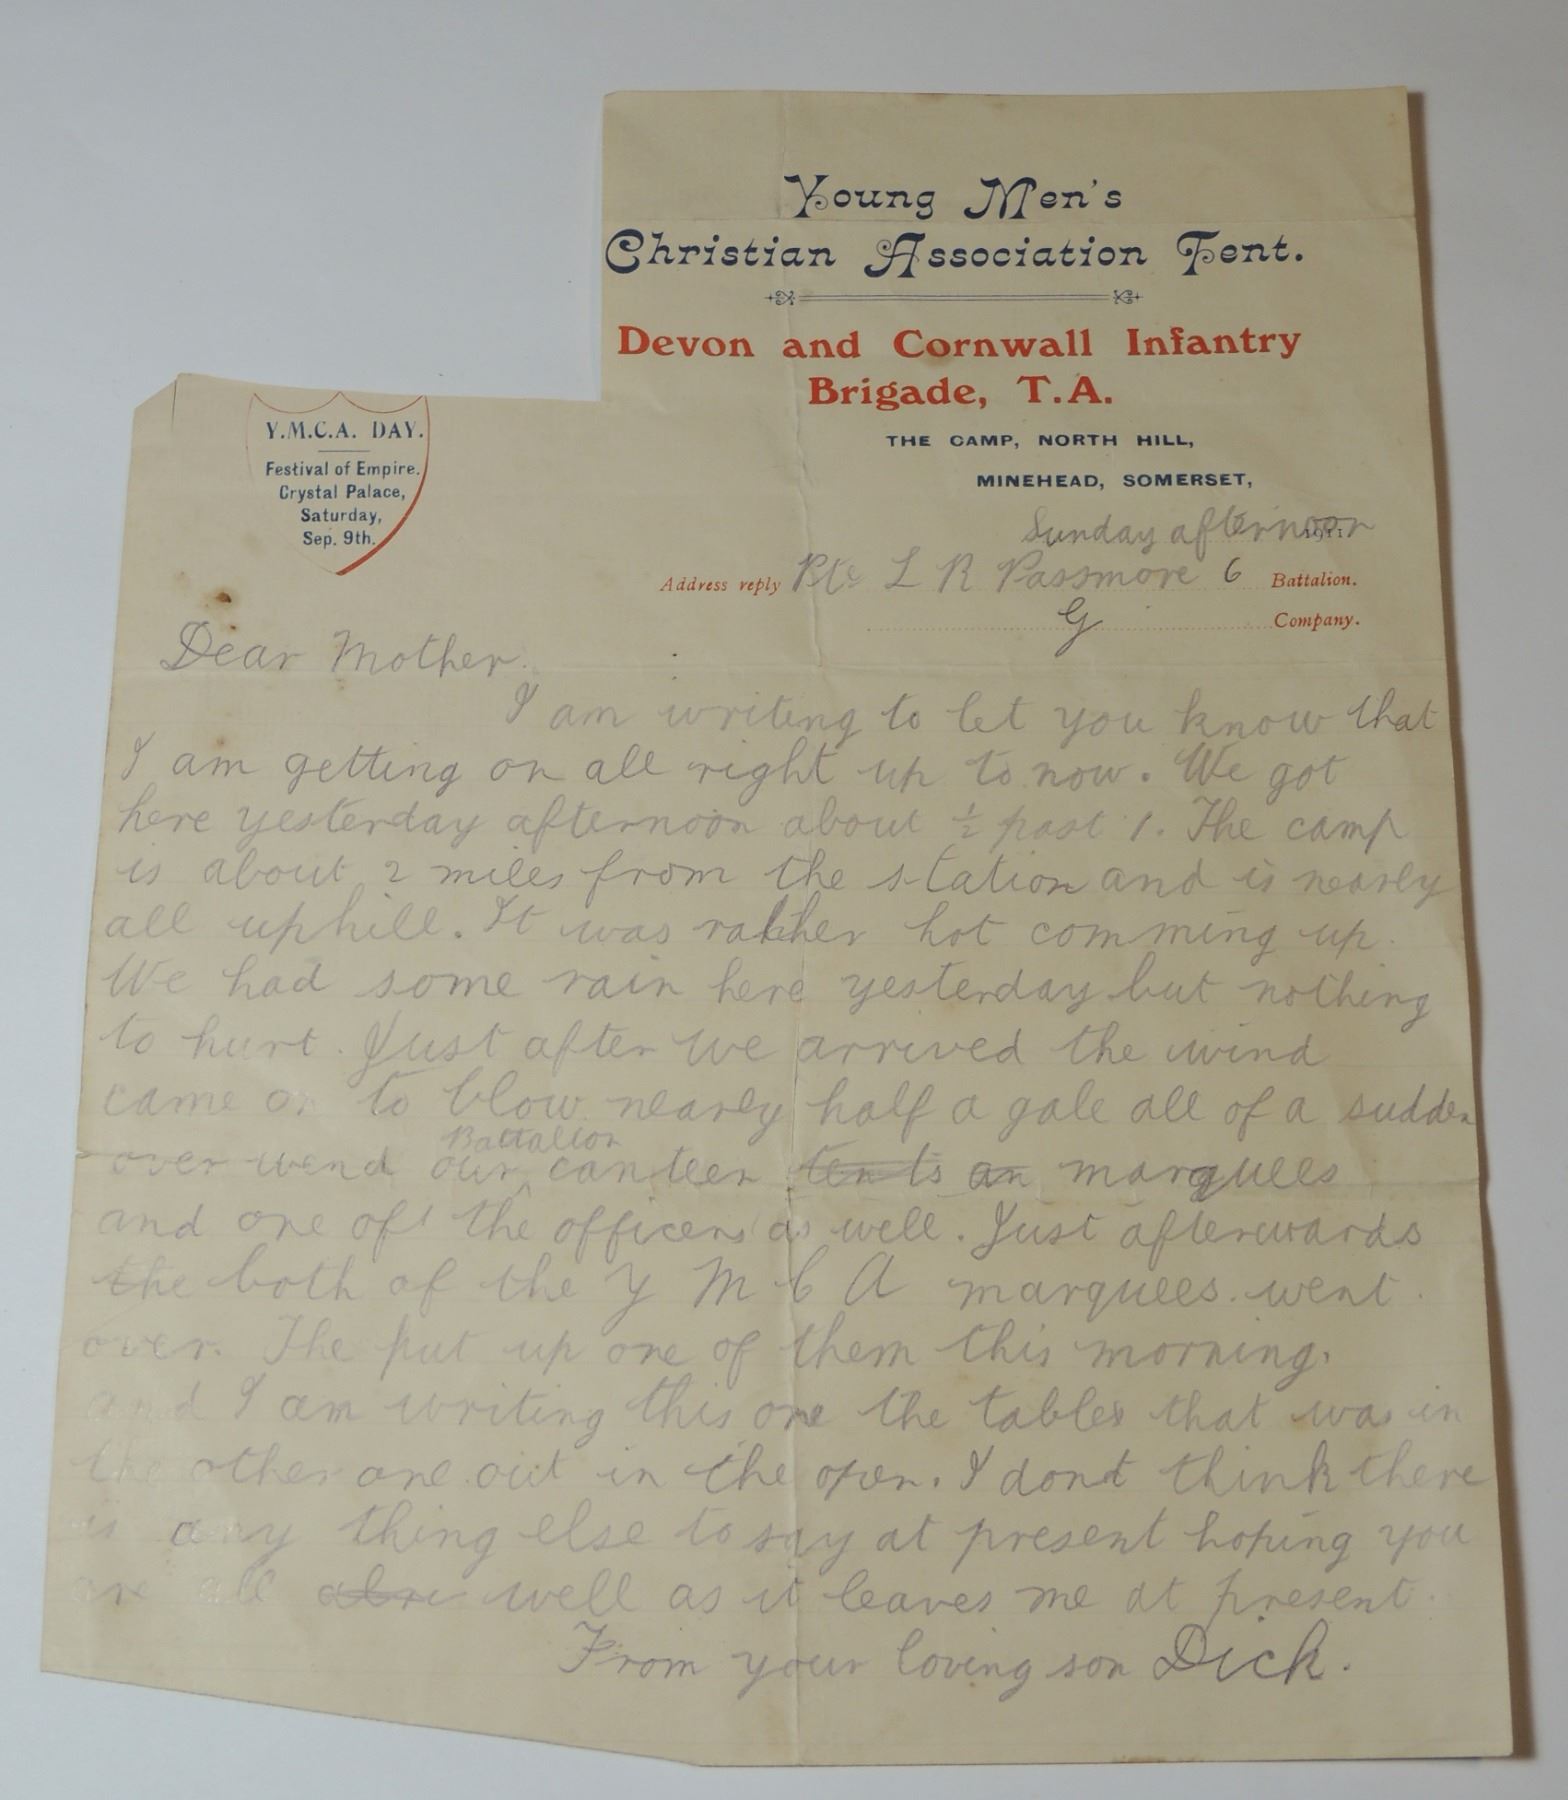 Young Men's
Christian Association Tent.
Devon and Cornwall Infantry
Brigade, T.A.
THE CAMP, NORTH HILL,
MINEHEAD, SOMERSET,
Y.M.C.A. DAY.
Festival of Empire.
Crystal Palace,
Saturday,
Sep. 9th.
Sunday afternoon 1911
Address reply Pte L R Passmore 6 Battalion.
G Company.
Dear Mother.
I am writing to let you know that
I am getting on all right up to now. We got
here yesterday afternoon about ½ past 1. The camp
is about 2 miles from the station and is nearly
all uphill. It was rather hot comming up.
We had some rain here yesterday but nothing
to hurt. Just after we arrived the wind
came on to blow nearly half a gale all of a sudden
Battalion
over wend our canteen tents an marquees
and one of the officers as well. Just afterwards
the both of the Y M C A marquees went
over. The put up one of them this morning.
and I am writing this one the tables that was in
the other one out in the open. I dont think there
is any thing else to say at present hoping you
are all well as it leaves me at present.
From your loving son Dick.